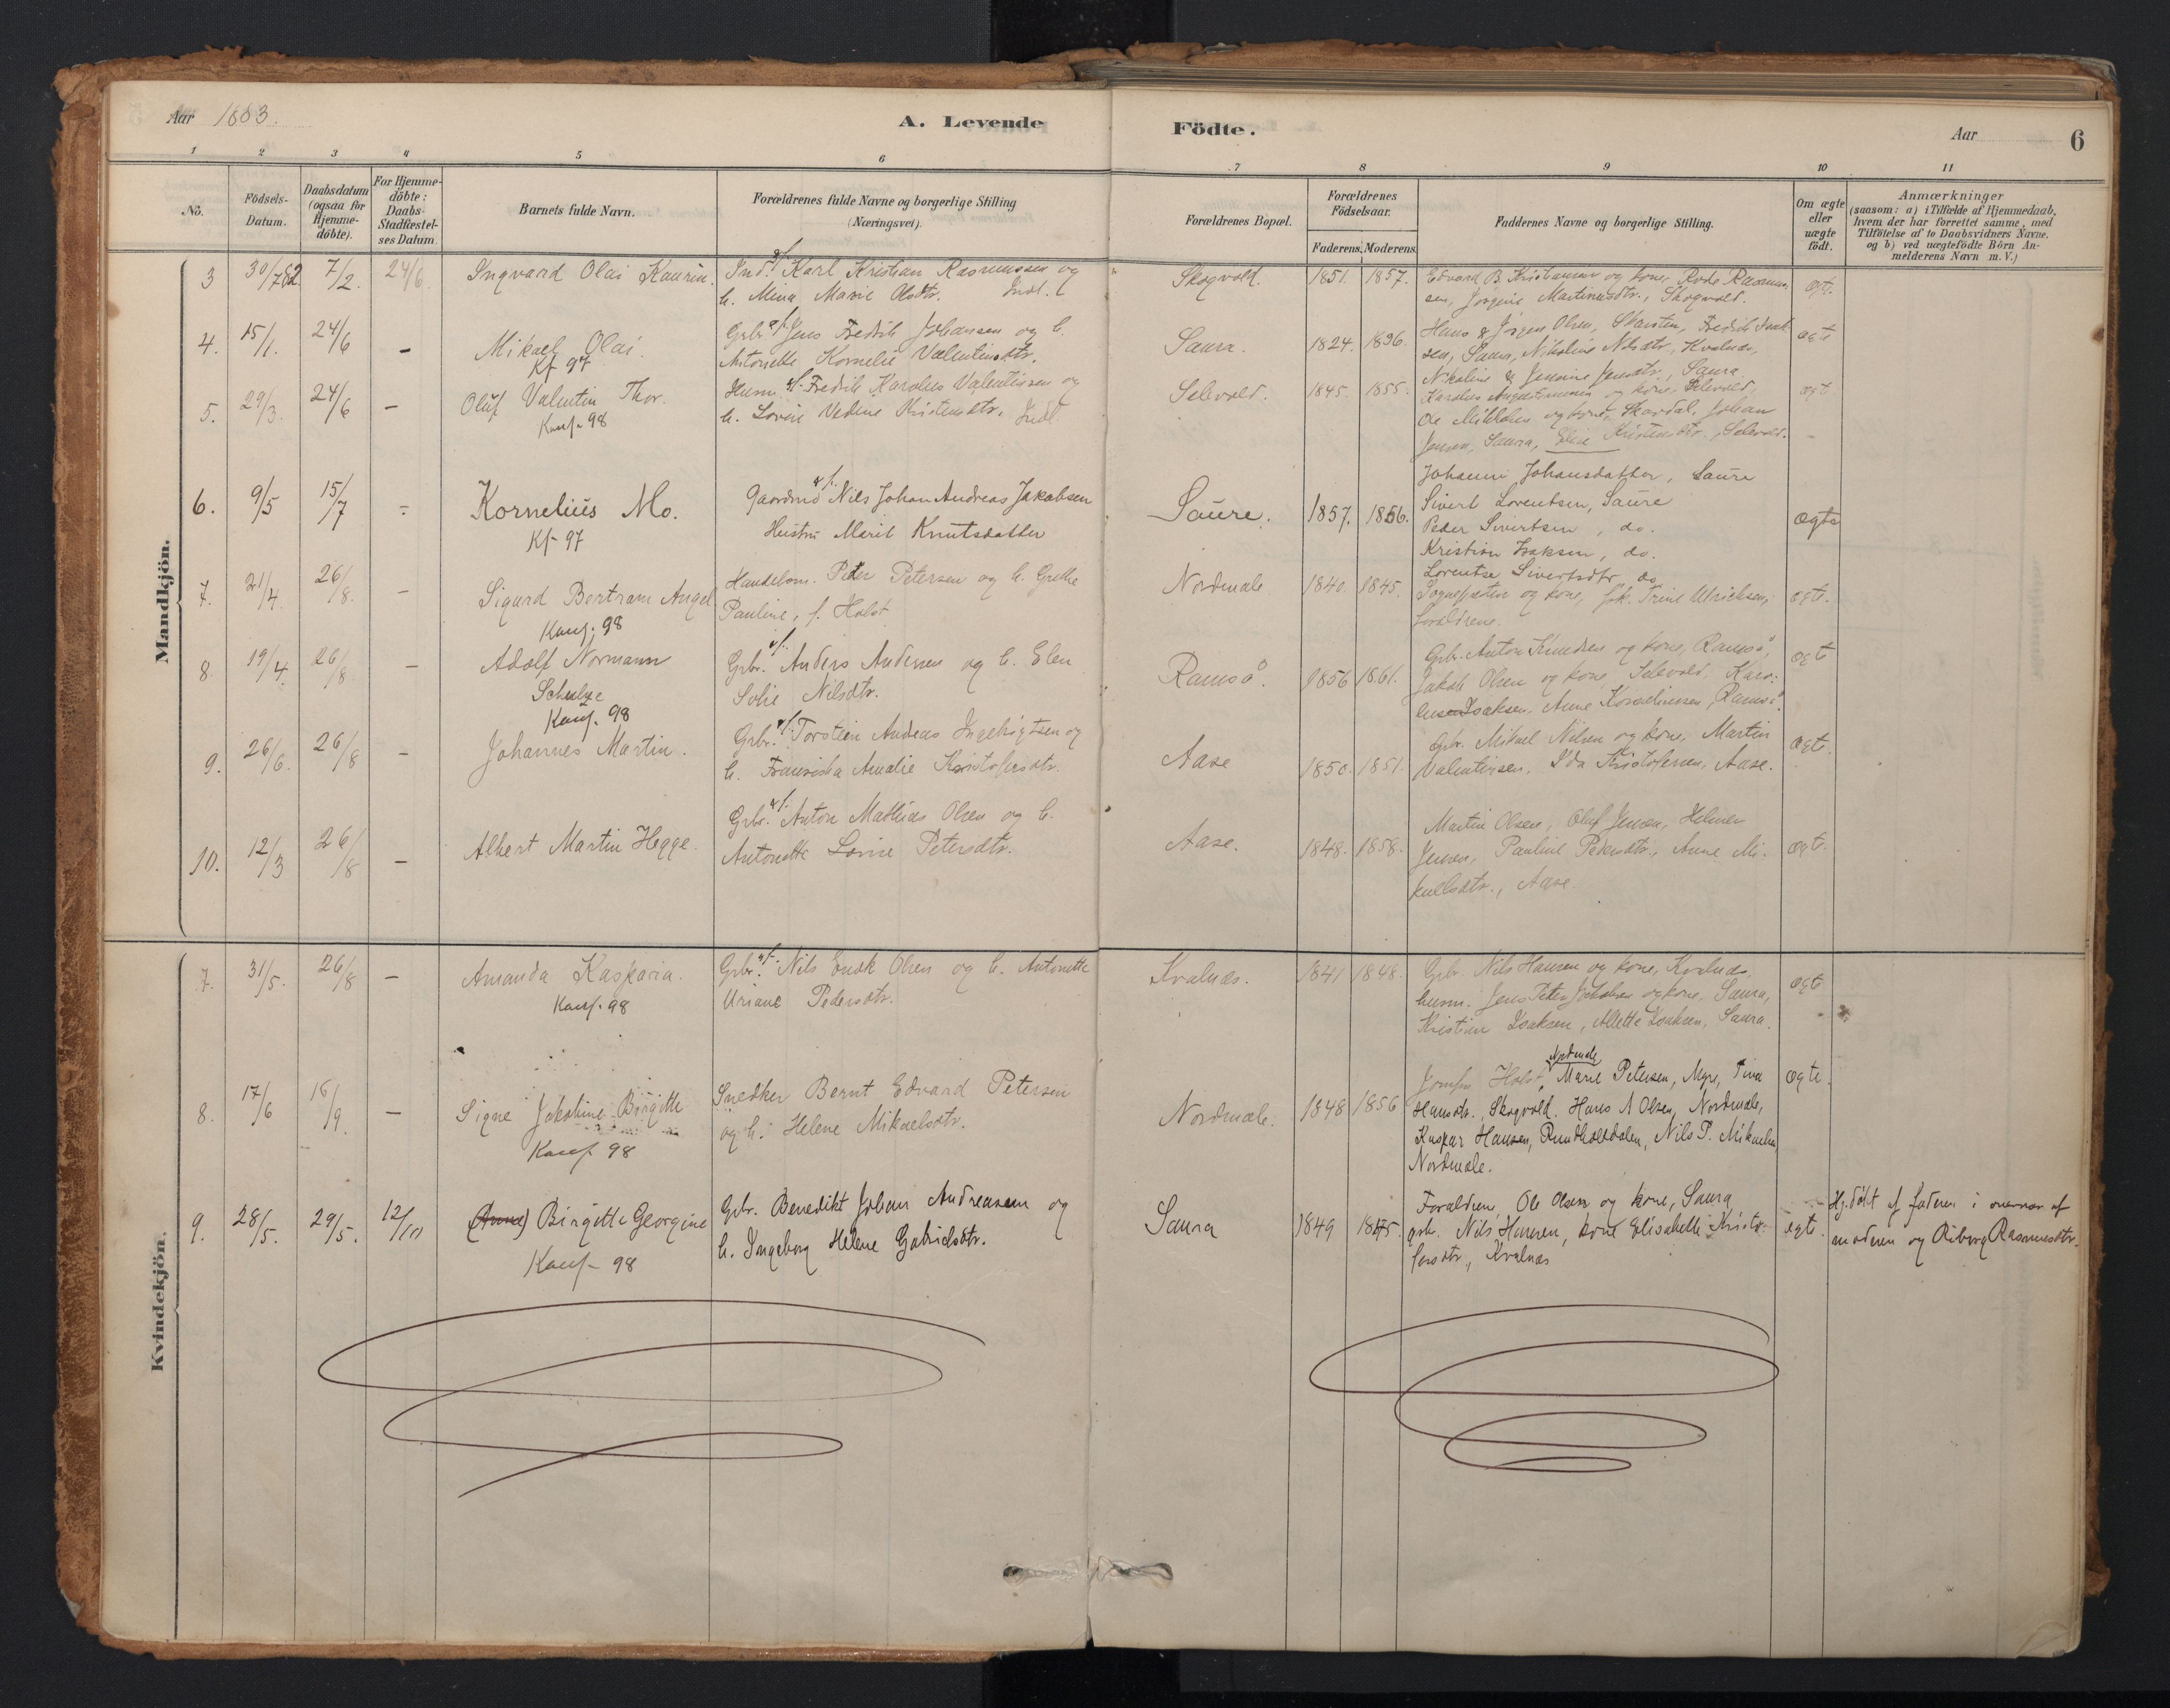 Aar 1883.
A. Levende Födte.
Aar
6
1 2 3 4 5 6 7 8 9 10 11
No.
Födsels-
Datum.
Daabsdatum
(ogsaa for
Hjemme-
döbte).
For Hjemme-
döbte:
Daabs-
Stadfæstel-
ses Datum.
Barnets fulde Navn.
Forældrenes fulde Navne og borgerlige Stilling
(Næringsvei).
Forældrenes Bopæl.
Forældrenes
Födselsaar.
Faderens. Moderens.
Faddernes Navne og borgerlige Stilling.
Om ægte
eller
uægte
födt.
Anmærkninger
(saasom: a) i Tilfælde af Hjemmedaab,
hvem der har forrettet samme, med
Tilföielse af to Daabsvidners Navne.
og b) ved uægtefödte Börn An-
melderens Navn m. V.)
Mandkjön.
3 30/7 82. 7/2. 24/6 Ingvard Olai Kaurin. Ind. Karl Kristian Rasmussen og
h. Mina Marie Olsdtr. Indl.
Skogvold. 1851. 1857. Edvard B. Kristiansen og kone, Rasmus-
sen, Jorgine Martinusdtr., Skogvold.
ægte.
4. 15/1. 24/6 - Mikael Olai.
Kf 97
Grbr. Jens Fredrik Johansen og h.
Antonette Kornelie Valentinsdtr.
Saura. 1824. 1836. Hans & Jörgen Olsen, Skarsten, Fredrik Isak-
sen, Saura, Nikoline Nilsdtr., Kvalnæs,
Nikoline & Jensine Jensdtr., Saura.
ægte
5. 29/3. 24/6 - Oluf Valentin Thor.
Konf. 98
Husm. Fredrik Karolius Valentinsen og
h. Lovise Vedine Kristensdtr. Indl
Selevold. 1845. 1855. Karolius Augustinusen og kone, Selevold,
Ole Mikkelsen og kone, Skavdal, Johan
Jensen, Saura, Elise Kristensdtr., Selevold.
ægt
6. 9/5 15/7 - Kornelius Mo.
Kf- 97
Gaardmd Nils Johan Andreas Jakobsen
Hustru Marit Knutsdatter
Saure. 1857. 1856. Johanne Johansdatter, Saure
Sivert Lorentsen, Saure
Peder Sivertsen, do.
Kristian Isaksen, do.
Lorentse Sivertsdtr, do
ægte
7. 21/4. 26/8. - Sigurd Bertram Angel
Konf. 98
Handelsm. Peter Petersen og h. Grethe
Pauline, f. Holst
Nordmæle 1840. 1845. Sognepresten og kone, frk. Trine Ulrichsen,
forældrene.
ægte.
8. 19/4. 26/8 - Adolf Normann
Schulze
Konf. 98
Grbr. Anders Andersen og h. Elen
Sofie Nilsdtr.
Ramsö. 1856 1861. Grb. Anton Knudsen og kone, Ramsö,
Jakob Olsen og kone, Selevold, Karo-
Isaksen, Anne Korneliussen, Ramsö.
ægte
9. 26/6. 26/8 - Johannes Martin. Grbr. Torstein Andreas Ingebrigtsen og
h. Fransiska Amalie Kristofersdtr.
Aase 1850. 1851. Grbr. Mikael Nilsen og kone, Martin
Valentinsen, Ida Kristofersen, Aase.
ægte.
10. 12/3 26/8 - Albert Martin Hegge. Grbr. Anton Mathias Olsen og h.
Antonette Lovise Petersdtr.
Aase. 1848. 1858. Martin Olsen, Oluf Jensen, Helmer
Jensen, Pauline Pedersdtr., Anne Mi-
kelsdtr., Aase.
ægte.
Kvindekjön.
7. 31/5. 26/8 - Amanda Kasparia.
Konf. 98
Grbr. Nils Enok Olsen og h. Antonette
Uriane Pedersdtr.
Kvalnæs. 1841 1848. Grb Nils Hansen og kone, Kvalnæs,
husm. Jens Peter Jakobsen og kone, Saura,
Kristian Isaksen, Alette Isaksen, Saura.
ægte
8. 17/6 16/9. - Signe Jakobine Birgitte
Konf 98
Snedker Bernt Edvard Petersen
og h. Helene Mikaelsdtr.
Nordmæle. 1848 1856 Jomfru Holst, Nordmæle Marie Petersen, Myre, Tina
Hansdtr., Skogvold. Hans A Olsen, Nordmæle,
Kaspar Hansen, Rundholtdalen, Nils P. Mikaelsen
Nordmæle.
ægte.
9. 28/5. 29/5. 12/10 (Anne) Birgitte Georgine
Konf- 98
Grbr. Benedikt Johan Andreassen og
h. Ingeborg Helene Gabrielsdtr.
Saura 1849 1845. Forældrene, Ole Olsen og kone, Saura
grb. Nils Hansen, kone Elisabeth Kristo-
fersdtr., Kvalnæs
ægte. Hj.döbt af faderen i overvær af
moderen og Riborg Rasmusdtr.